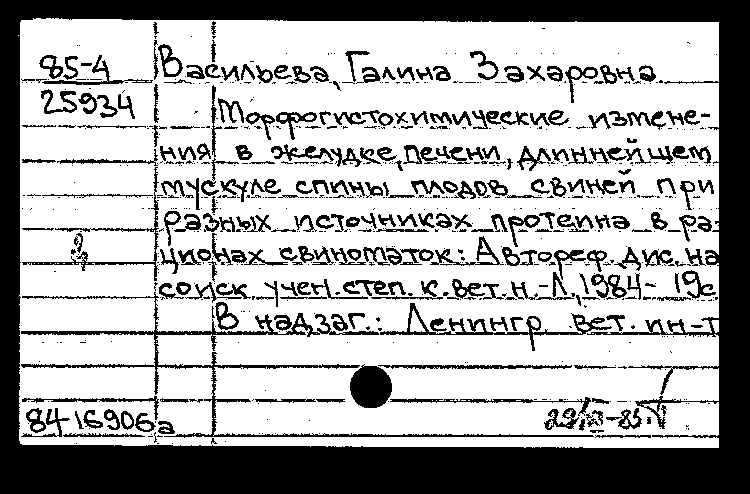 85-4
25934
Васильева, Галина Захаровна
Морфогистохимические измене-
ния в желудке, печени, длиннейшем
мускуле спины плодов свиней при
разных источниках протеина в ра-
ционах свиноматок: Автореф. дис. на
соиск учен. степ. к. вет. н. -Л., 1984- 19с
В надзаг.: Ленингр. вет. ин-т
84-16906а